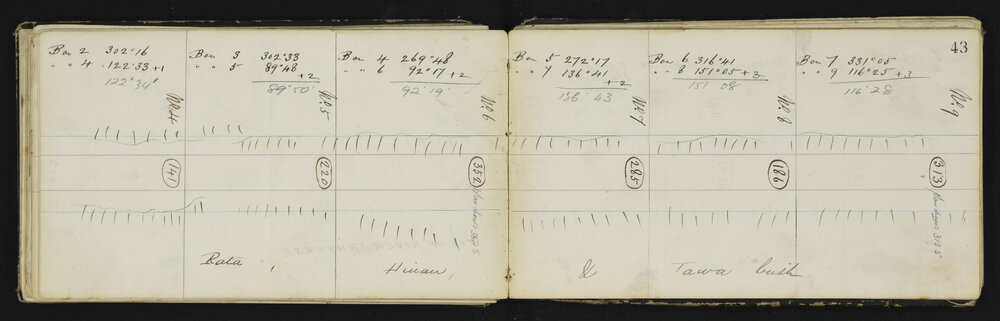 43
Bon 2 302°16
" " 4 122°33 +1
122°34'
Bon 3 302°33
" " 5 89°48
+2
89°50'
Bon 4 269°48
" " 6 92°17 +2
92°19'
Bon 5 272°17
" " 7 136°41
+2
136°43
Bon 6 316°41
" " 8 151°05 +3
151 08
Bon 7 331°05
" " 9 116°25 +3
116°28
No.4
No.5
No.6
No.7
No.8
No.9
141
220
352
285
186
313
Rata, Hinau, & Tawa bush